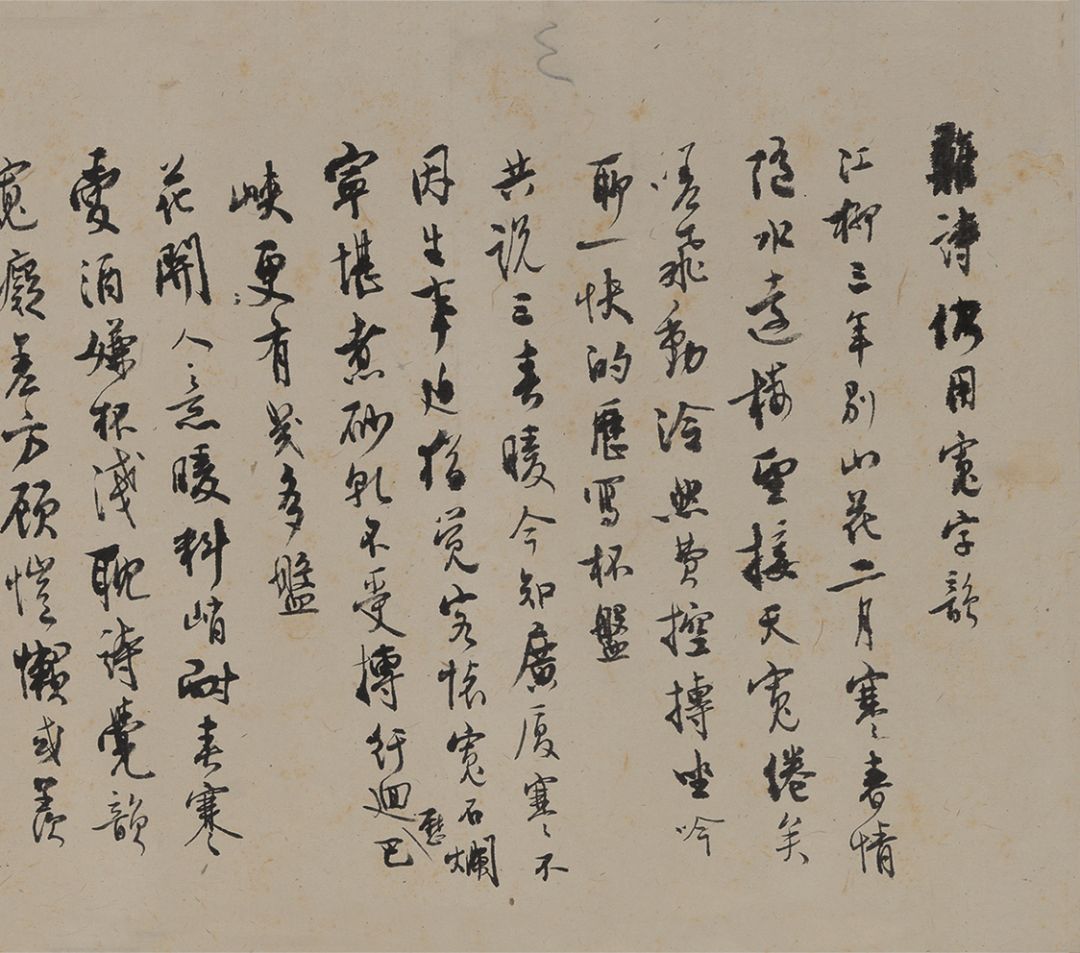 雜詩偶用寬字韻
江柳三年別山花二月寒〻春情
隨水遠樓雲接天寬倦矣
嗟飛動泠然費摶坐吟
聊一快的歷寫杯盤
共說三春暖今知廣廈寒〻不
因生事迫指覺客懷寬石爛
寧堪煮砂乳不受摶行迴歷巴
峽更有幾多盤
花開人〻意暖料峭耐春寒〻
愛酒嫌杯淺耽詩覺韻
寬癡差方顧愷懶或羨